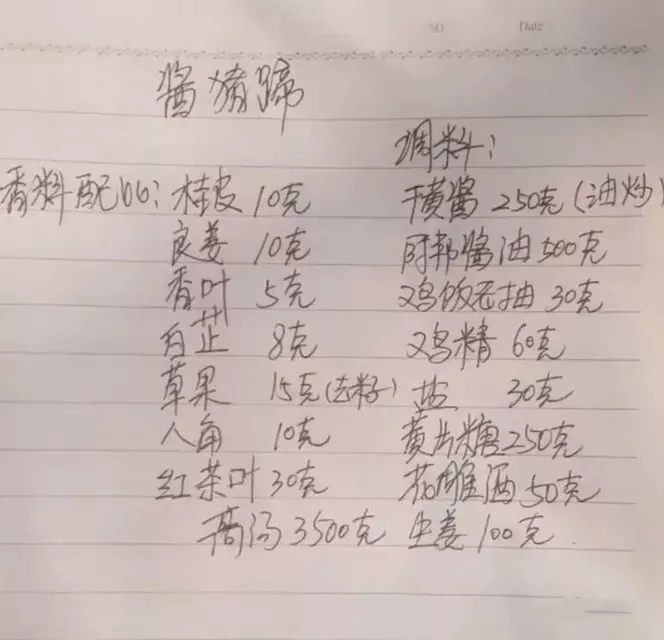 NO
Date
酱猪蹄
调料：
香料配比：桂皮 10克 干黄酱 250克（油炒）
良姜 10克 阿邦酱油 500克
香叶 5克 鸡饭老抽 30克
白芷 8克 鸡精 60克
草果 15克（去籽） 盐 30克
八角 10克 黄片糖 250克
红茶叶 30克 花雕酒 50克
高汤 3500克 生姜 100克